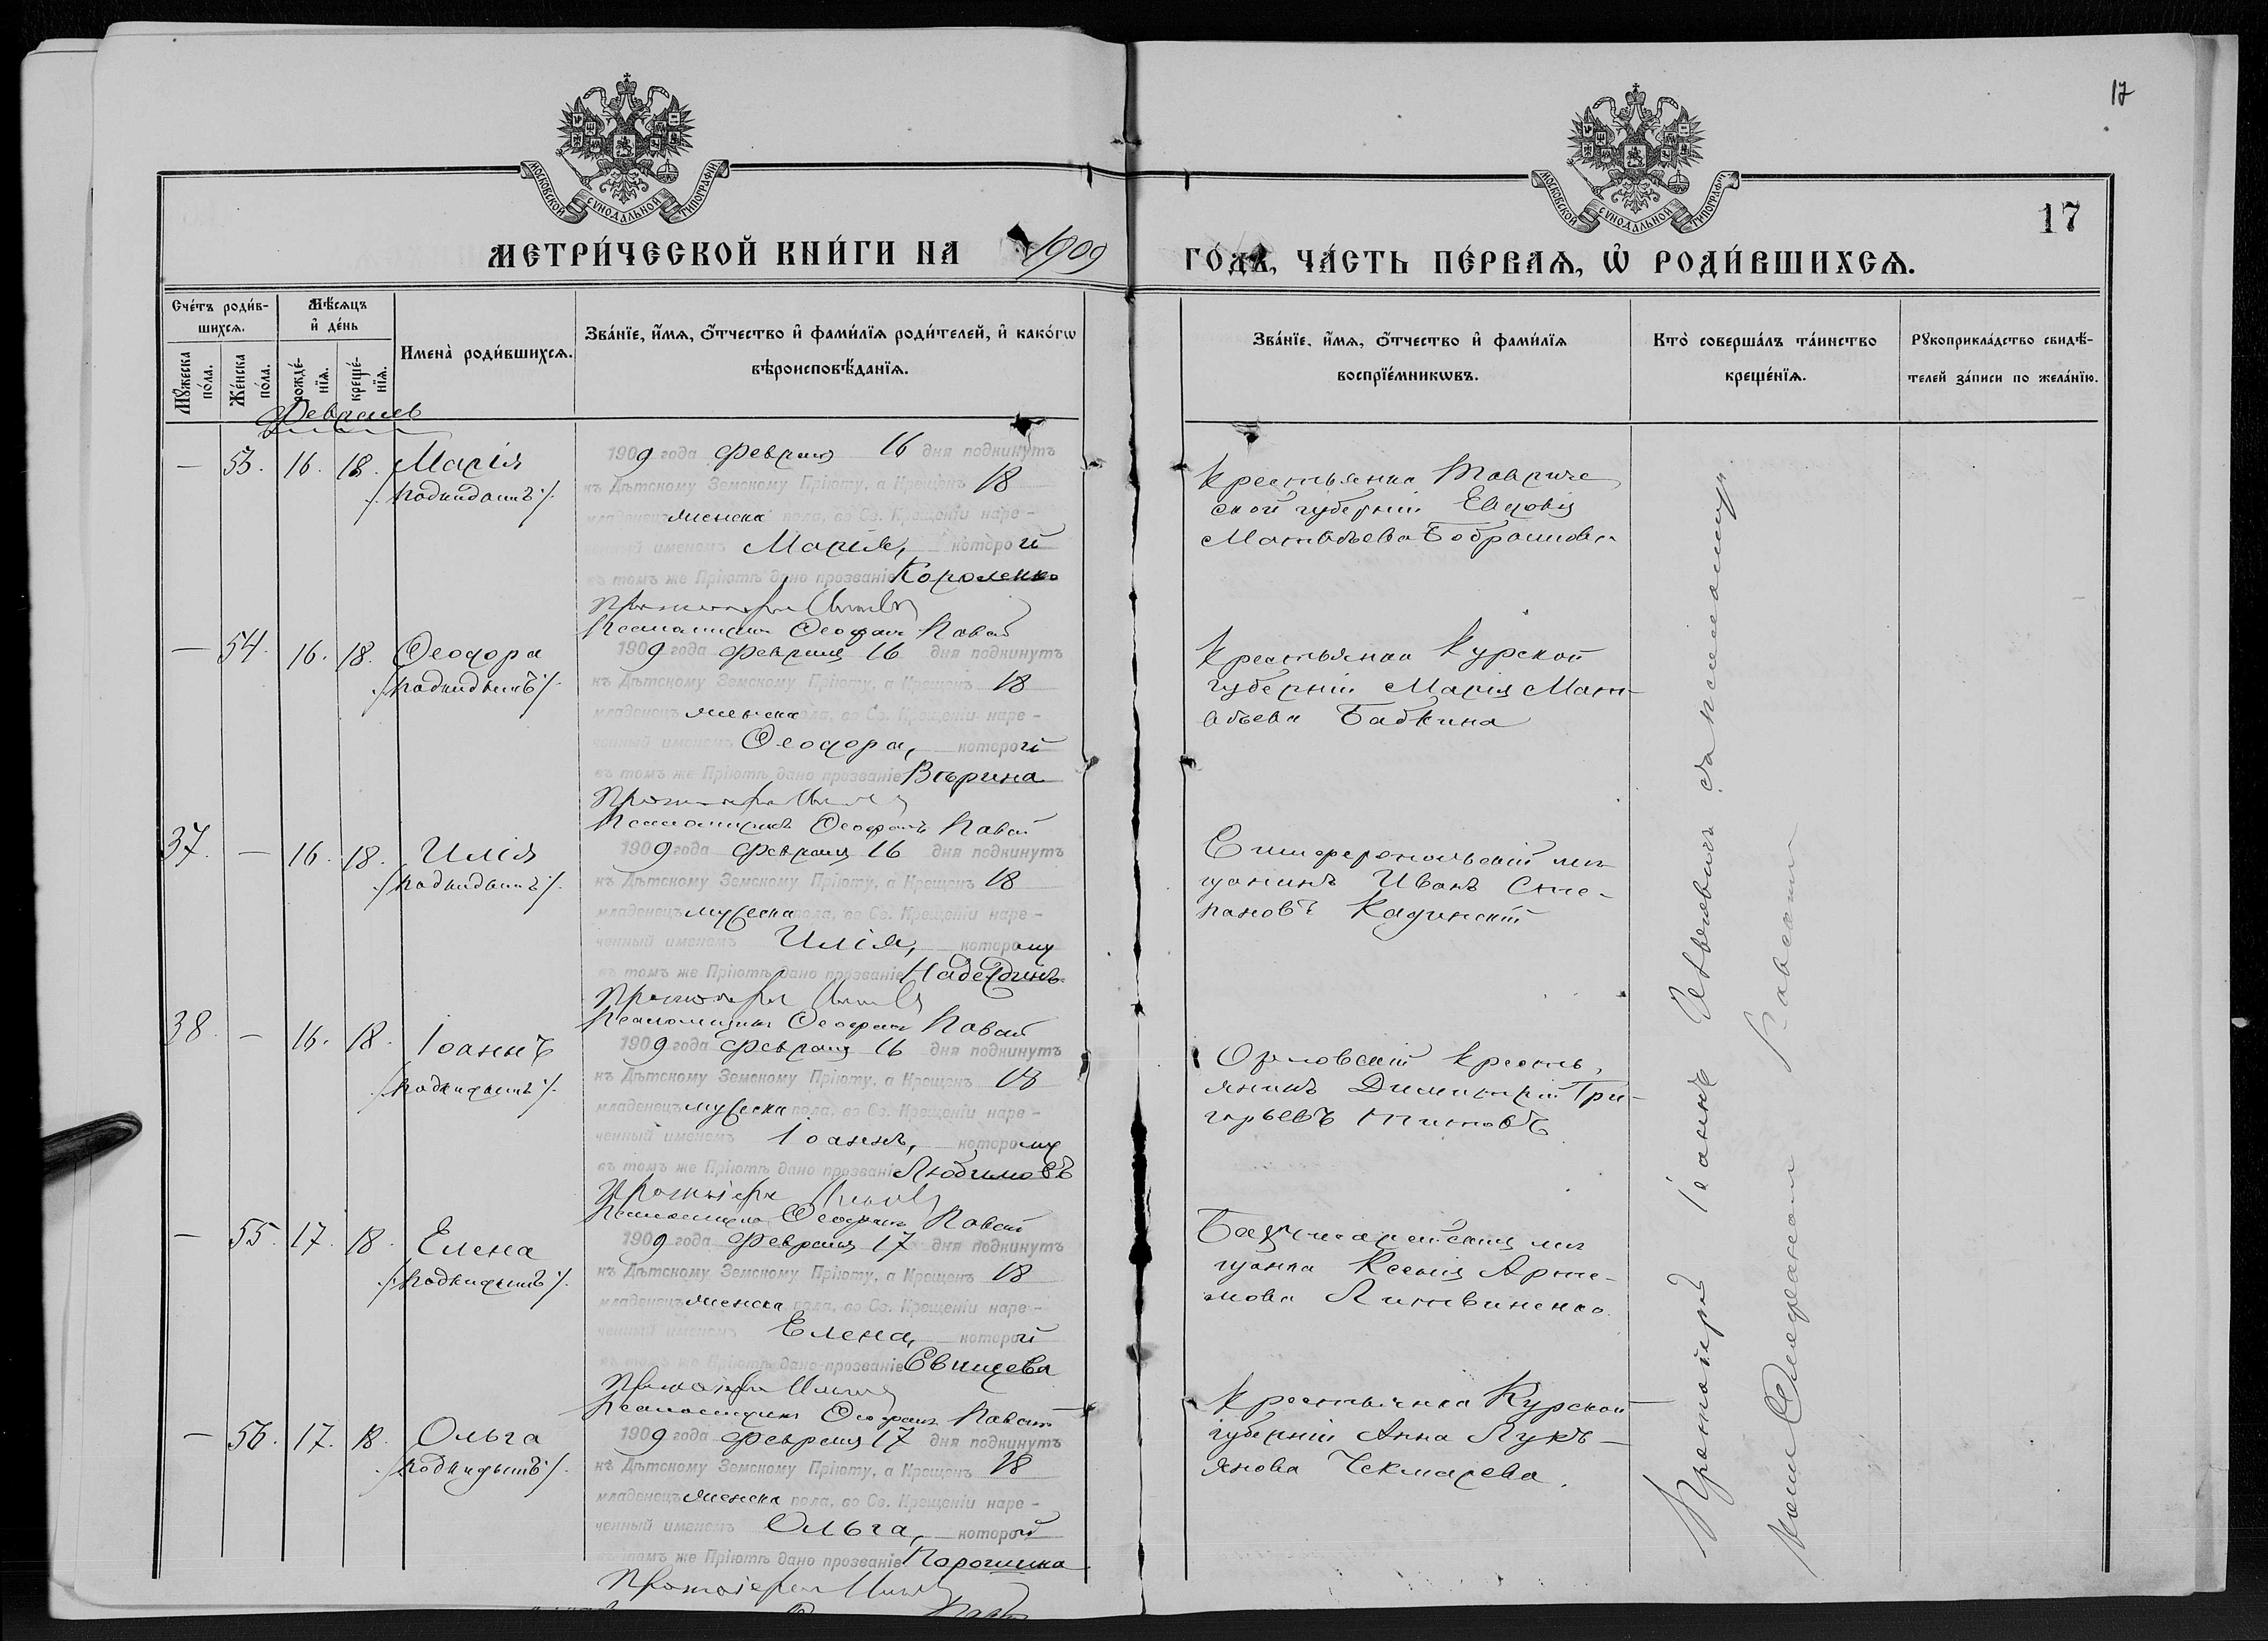 17
МОСКОВСКОЙ СѴНОДАЛЬНОЙ ТИПОГРАФІИ
МОСКОВСКОЙ СѴНОДАЛЬНОЙ ТИПОГРАФІИ
17
МЕТРИ́ЧЕСКОЙ КНИ́ГИ НА 1909 ГО́ДЪ, ЧА́СТЬ ПЕ́РВАЯ, Ѡ҆ РОДИ́ВШИХСЯ.
Сче́тъ роди́в-
шихся.
Мѹ́жеска по́ла.
Же́нска по́ла.
Мѣ́сяцъ
и҆ де́нь
рожде́-
нїя.
креще́-
нїя.
Имена̀ роди́вшихся.
Зва́нїе, и҆́мя, ѻ҆́тчество и҆ фами́лїя роди́телей, и҆ како́гѡ
вѣроисповѣ́данїя.
Зва́нїе, и҆́мя, ѻ҆́тчество и҆ фами́лїя
воспрїе́мникѡвъ.
Кто̀ соверша́лъ та́инство
креще́нїя.
Рѹкоприкла́дство свидѣ́-
телей за́писи по жела́нїю.
Февраль
— 53. 16. 18. Марія
/подкидышъ/.
1909 года Февраля 16 дня подкинутъ
къ Дѣтскому Земскому Пріюту, а Крещенъ 18
младенецъ женска пола, во Св. Крещеніи наре-
ченный именемъ Марія, которой
въ томъ же Пріютѣ дано прозваніе Короленко
Протоіерей
Псаломщикъ Ѳеофанъ
Крестьянка Тавриче
ской губерніи Евдокія
Матвѣева
— 54. 16. 18. Ѳеодора
/подкидышъ/.
1909 года Февраля 16 дня подкинутъ
къ Дѣтскому Земскому Пріюту, а Крещенъ 18
младенецъ женска пола, во Св. Крещеніи наре-
ченный именемъ Ѳеодора, которой
въ томъ же Пріютѣ дано прозваніе Вѣрина
Протоіерей
Псаломщикъ Ѳеофанъ
Крестьянка Курской
губерніи Марія Мат-
вѣева Бабкина
37. — 16. 18. Илія
/подкидышъ/.
1909 года Февраля 16 дня подкинутъ
къ Дѣтскому Земскому Пріюту, а Крещенъ 18
младенецъ мужеска пола, во Св. Крещеніи наре-
ченный именемъ Илія, которому
въ томъ же Пріютѣ дано прозваніе Надеждинъ
Протоіерей
Псаломщикъ Ѳеофанъ
Симферопольскій мѣ
щанинъ Иванъ Сте-
пановъ
38. — 16. 18. Іоаннъ
/подкидышъ/.
1909 года Февраля 16 дня подкинутъ
къ Дѣтскому Земскому Пріюту, а Крещенъ 18
младенецъ мужеска пола, во Св. Крещеніи наре-
ченный именемъ Іоаннъ, которому
въ томъ же Пріютѣ дано прозваніе Любимовъ
Протоіерей
Псаломщикъ Ѳеофанъ
Орловскій кресть,
янинъ Димитрій Гри-
горьевъ Титовъ
— 55. 17. 18. Елена
/подкидышъ/.
1909 года Февраля 17 дня подкинутъ
къ Дѣтскому Земскому Пріюту, а Крещенъ 18
младенецъ женска пола, во Св. Крещеніи наре-
ченный именемъ Елена, которой
въ томъ же Пріютѣ дано прозваніе
Протоіерей
Псаломщикъ Ѳеофанъ
Бахчисарайская мѣ
щанка Ксенія Арте-
мова Литвиненко.
— 56. 17. 18. Ольга
/подкидышъ/.
1909 года Февраля 17 дня подкинутъ
къ Дѣтскому Земскому Пріюту, а Крещенъ 18
младенецъ женска пола, во Св. Крещеніи наре-
ченный именемъ Ольга, которой
въ томъ же Пріютѣ дано прозваніе Порошина
Протоіерей
Крестьянка Курской
губерніи Анна Лукь-
янова Чекмарева.
Протоіерей Іоаннъ съ псаломщи